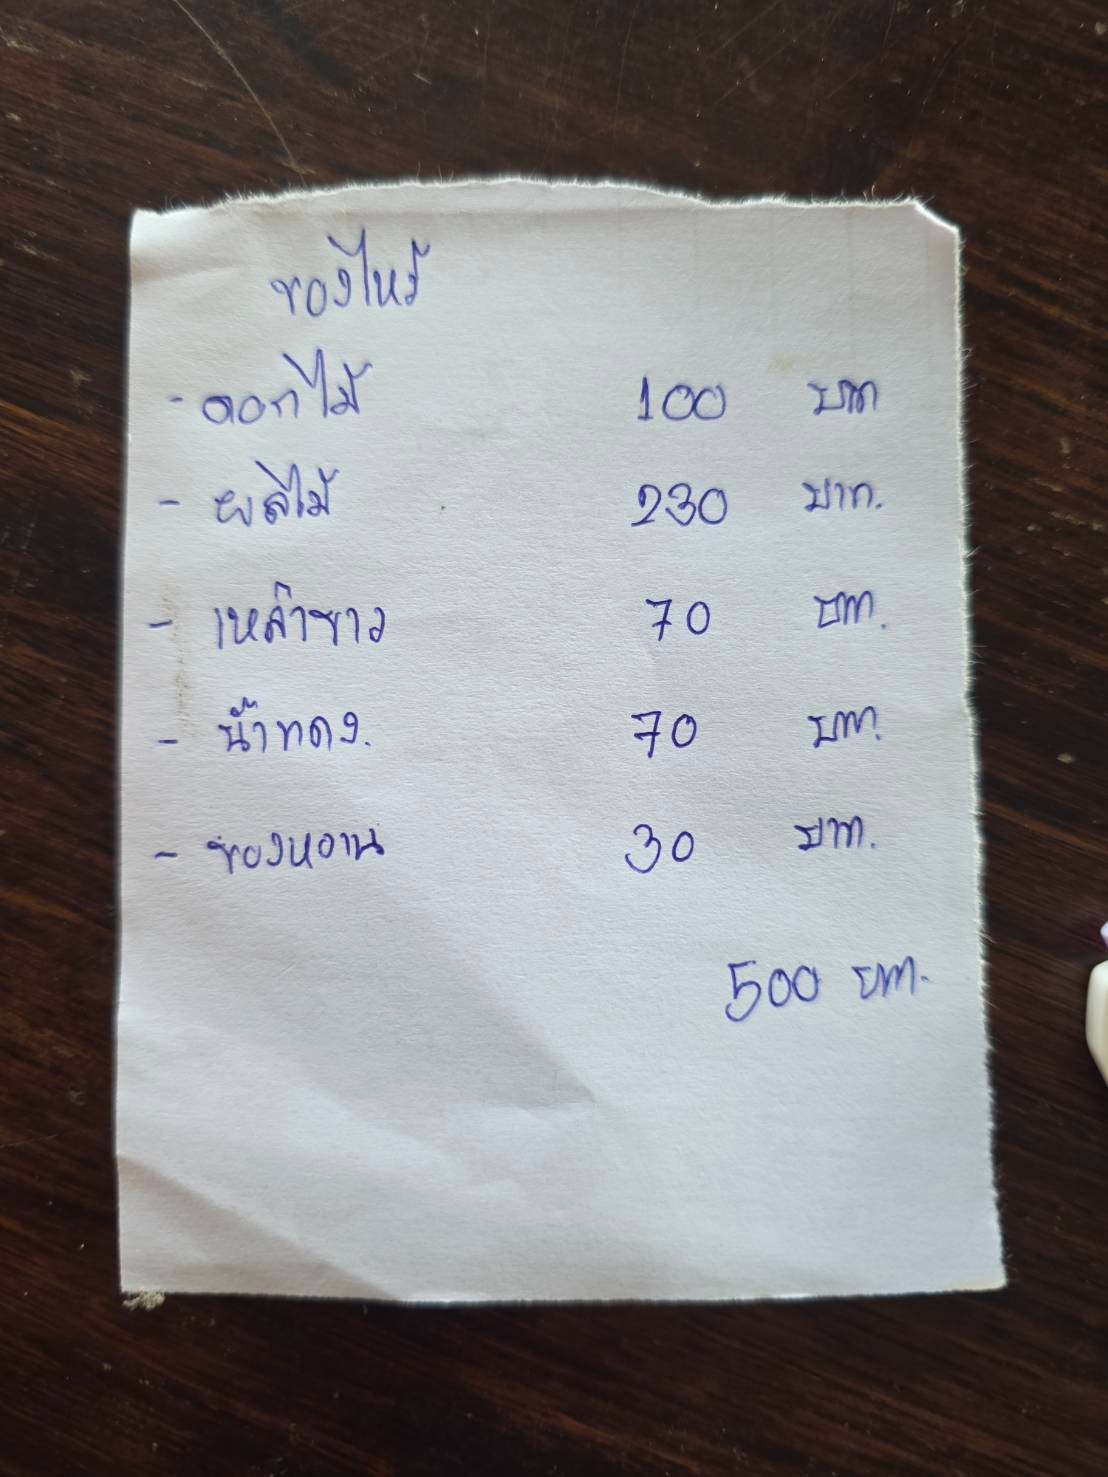 ของไหว้
- ดอกไม้ 100 บาท
- ผลไม้ 230 บาท.
- เหล้าขาว 70 บาท.
- น้ำทดง. 70 บาท.
- ของหวาน 30 บาท.
500 บาท.